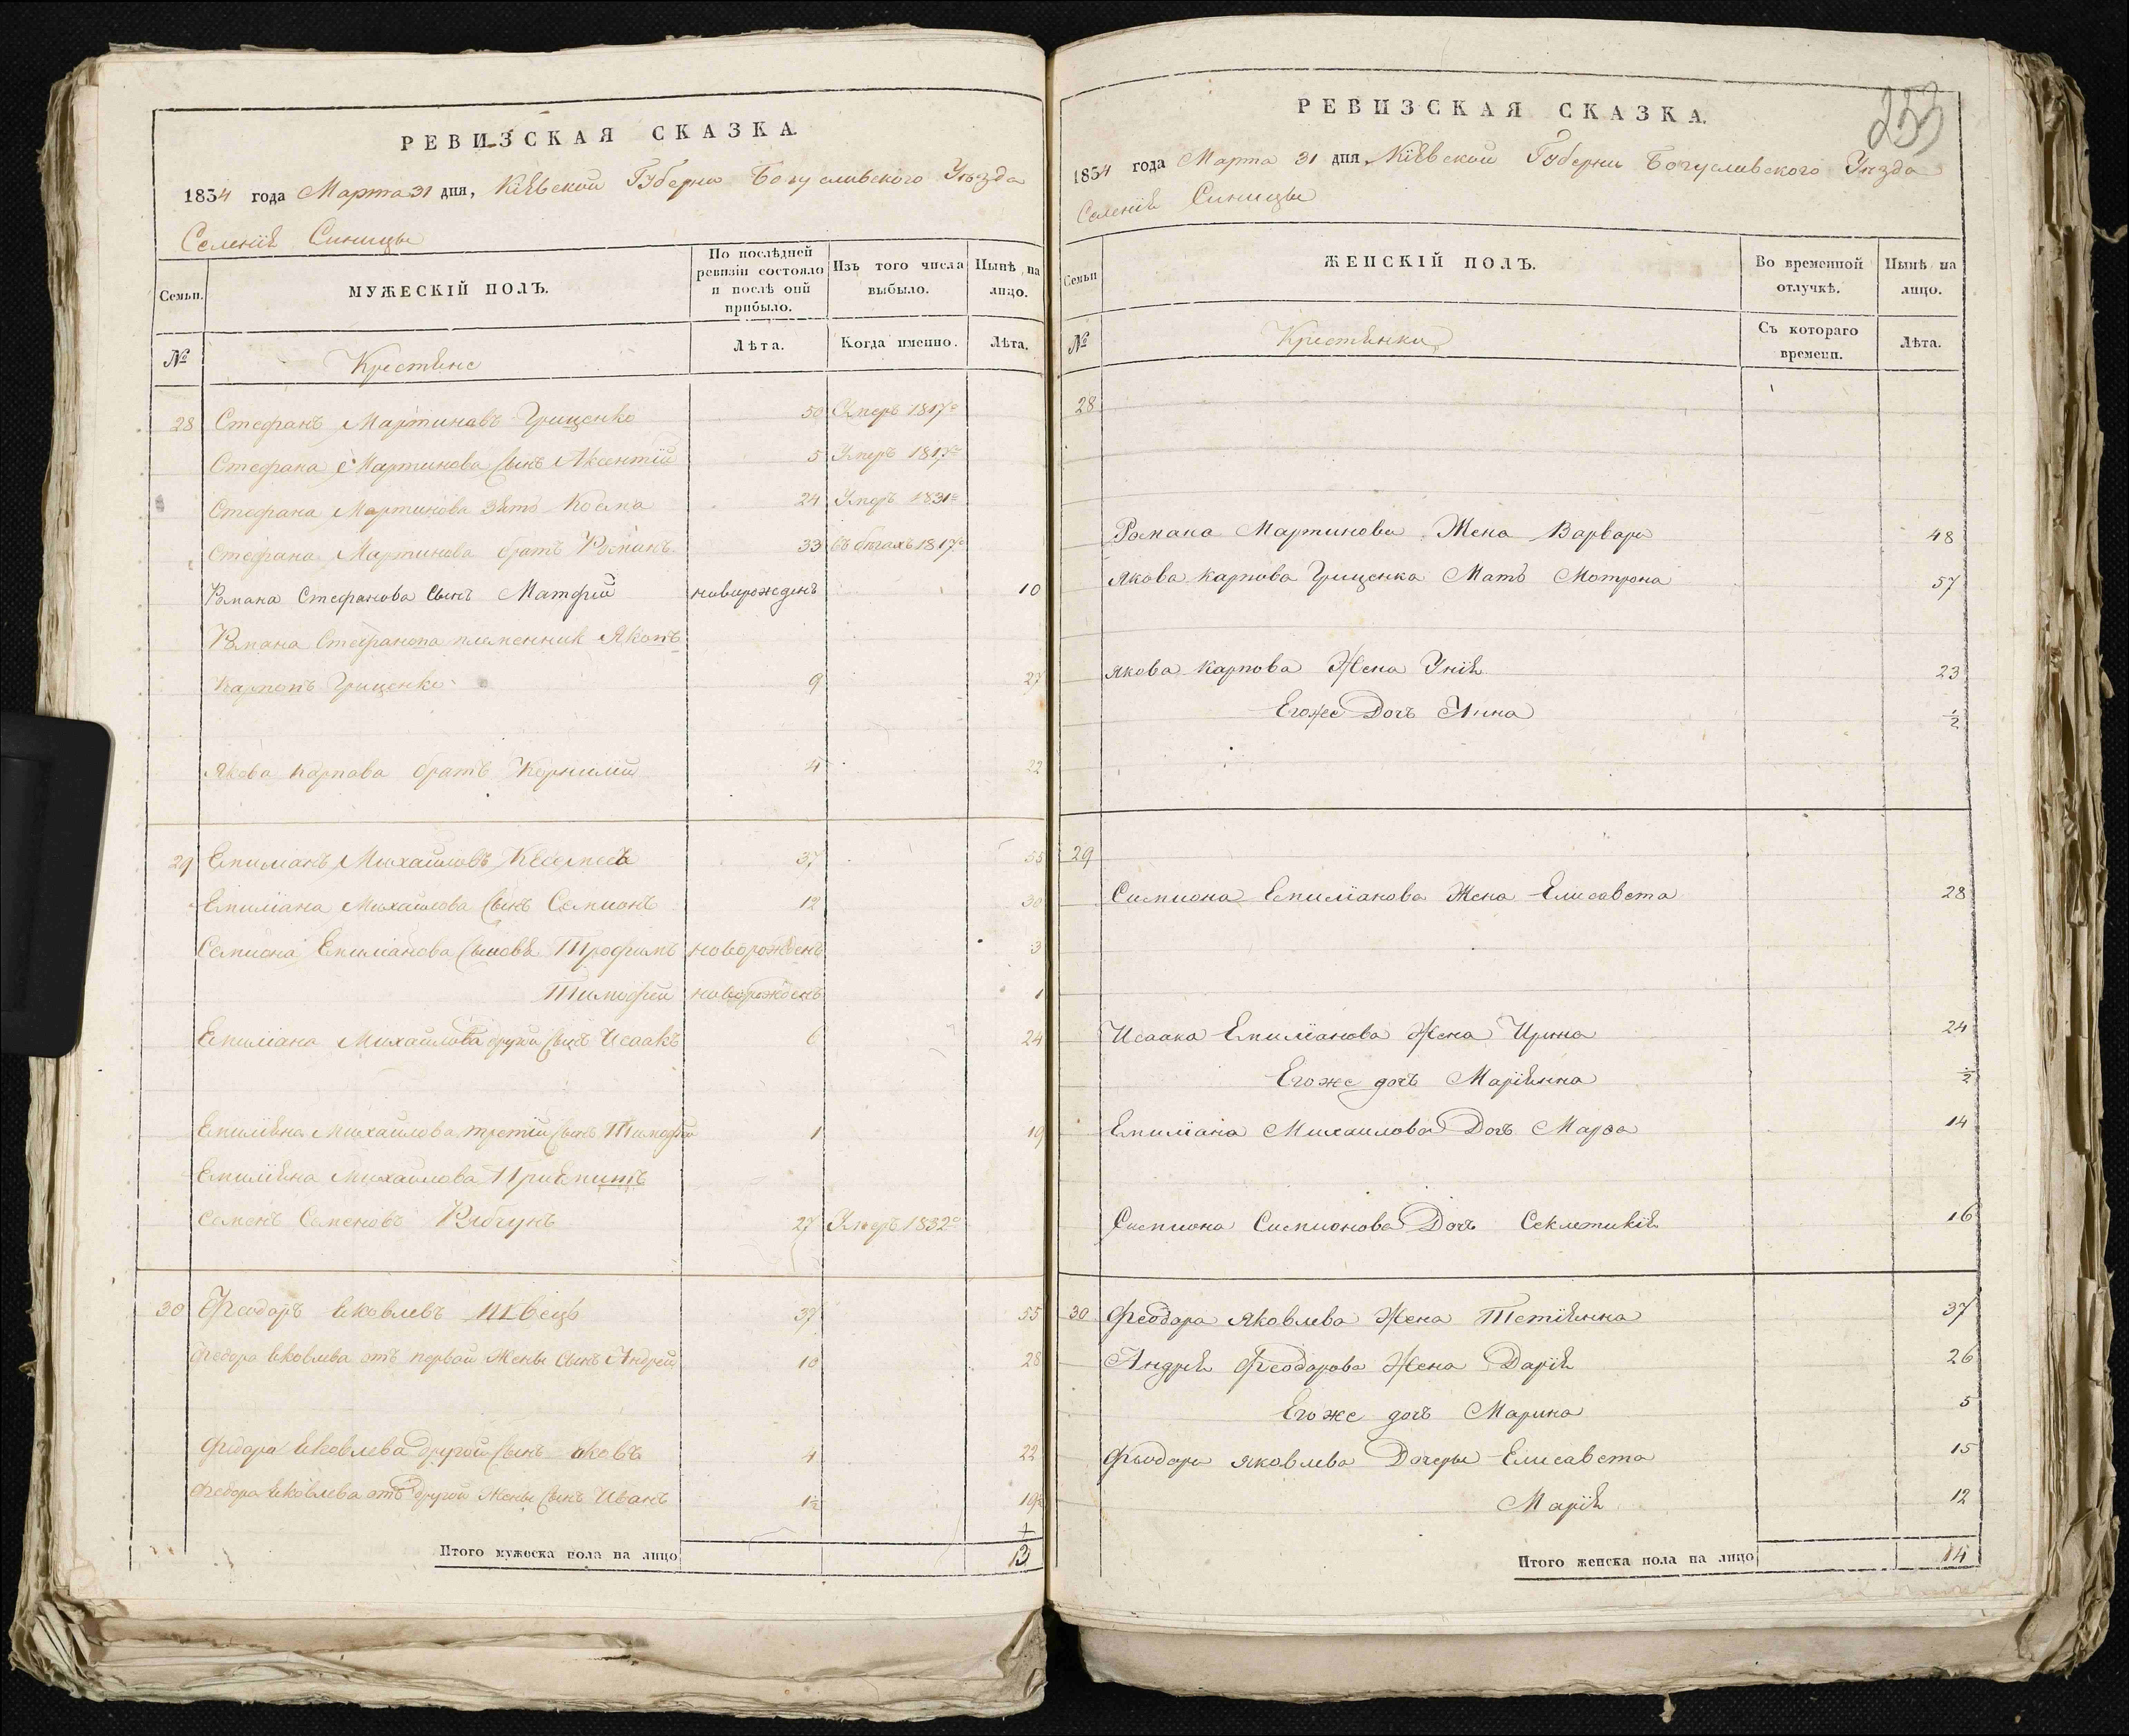 РЕВИЗСКАЯ СКАЗКА.
1834 года Марта 31 дня, Кіевской Губерни Богуславского Уезда
Селенія Синицы
Семьи.
МУЖЕСКІЙ ПОЛЪ.
По послѣдней ревизіи состояло и послѣ оній прибыло.
Изъ того числа выбыло.
Нынѣ на лицо.
№
Крестяне
Лѣта.
Когда именно.
Лѣта.
28 Стефанъ Мартиновъ Грищенко 50 Умеръ 1817го
Стефана Мартинова Сынъ Аксентій 5 Умеръ 1817го
Стефана Мартинова зять Косма 24 Умеръ 1831го
Стефана Мартинова братъ Романъ 33 въ бѣгахъ 1817го
Романа Стефанова Сынъ Матфій новорожденъ 10
Романа Стефанова племенник Яковъ
Карповъ Грищенко 9 27
Якова Карпова братъ Корнилій 4 22
29 Емиліанъ Михайловъ 37 55
Емиліана Михайлова Сынъ Самионъ 12 30
Самиона Емилианова Сыновя Трофимъ новорожденъ 3
Тимофей новорожденъ 1
Емиліана Михайлова другой Сынъ Исаакъ 6 24
Емиліяна Михайлова третій Сынъ Тимофей 1 19
Емиліяна Михайлова Приемитъ
Семенъ Семеновъ Рябчунъ 27 Умеръ 1832го
30 Феодоръ Яковлевъ Швецъ 37 55
Федора Яковлева отъ первой Жены Сынъ Андрей 10 28
Федора Яковлева другой Сынъ Яковъ 4 22
Федора Яковлева отъ другой Жены Сынъ Иванъ 1½ 19½
Итого мужеска пола на лицо 13
253
РЕВИЗСКАЯ СКАЗКА.
1834 года Марта 31 дня, Кіевской Губерни Богуславского Уезда
Селенія Синицы
Семьи
ЖЕНСКІЙ ПОЛЪ.
Во временной отлучкѣ.
Нынѣ на лицо.
№
Крестянки
Съ котораго времени.
Лѣта.
28
Романа Мартинова Жена Варвара 48
Якова Карпова Грищенка Мать Мотрона 57
Якова Карпова Жена Унія 23
Егоже Дочь Анна ½
29
Самиона Емиліанова Жена Елисавета 28
Исаака Емиліанова Жена Ирина 24
Егоже дочъ Маріянна ½
Емиліана Михаилова Дочъ Марѳа 14
Самиона Самионова Дочъ Секлетикія 16
30 Феодора Яковлева Жена Тетіянна 37
Андрея Феодорова Жена Дарія 26
Егоже дочъ Марина 5
Феодора Яковлева Дочеры Елисавета 15
Марія 12
Итого женска пола на лицо 14